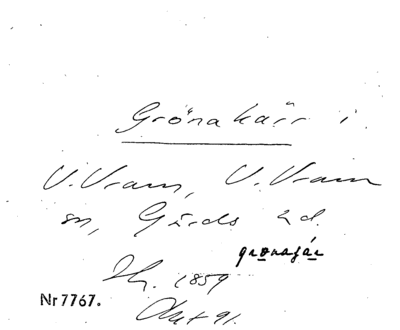 Gröna kärr i
V. Vram, V. Vram
sn, Gärds hd.
gronajár
Hr. 1859
Nr 7767.